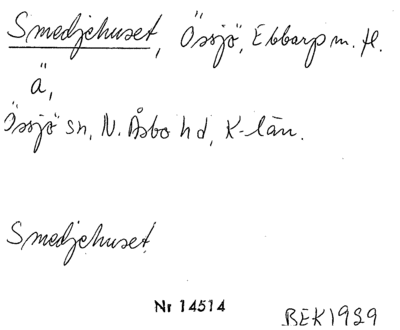 Smedjehuset, Össjö, Ebbarp m. fl.
ä,
Össjö sn, N. Åsbo hd, K-län.
Smedjehuset
Nr 14514
BEK 1929